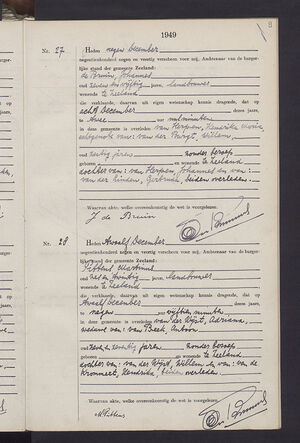 1949
9
Nr. 27
Heden negen December
negentienhonderd negen en veertig verscheen voor mij, Ambtenaar van de burger-
lijke stand der gemeente Zeeland:
de Bruin, Johannes
oud zeven en vijftig jaren, landbouwer
wonende te Zeeland
die verklaarde, daarvan uit eigen wetenschap kennis dragende, dat op
acht December dezes jaars,
te twee uur namiddag
in deze gemeente is overleden van Herpen, Hendrika Maria
echtgenote van: van der Burgt, Willem,
oud zestig jaren zonder beroep
geboren en wonende te Zeeland
dochter van: van Herpen, Johannes en van:
van der Linden, Gertruda, beiden overleden.
Waarvan akte, welke overeenkomstig de wet is voorgelezen.
J de Bruin
Nr. 28
Heden twaalf December
negentienhonderd negen en veertig verscheen voor mij, Ambtenaar van de burger-
lijke stand der gemeente Zeeland:
oud jaren, landbouwer
wonende te Zeeland
die verklaarde, daarvan uit eigen wetenschap kennis dragende, dat op
twaalf December dezes jaars,
te negen uur vijftien minuten
in deze gemeente is overleden van der Wijst, Adriana,
weduwe van: van Beek, Antoon
oud zeventig jaren zonder beroep
geboren en wonende te Zeeland
dochter van: van der Wijst, Willem en van: van de
Hendrika, beiden overleden.
Waarvan akte, welke overeenkomstig de wet is voorgelezen.